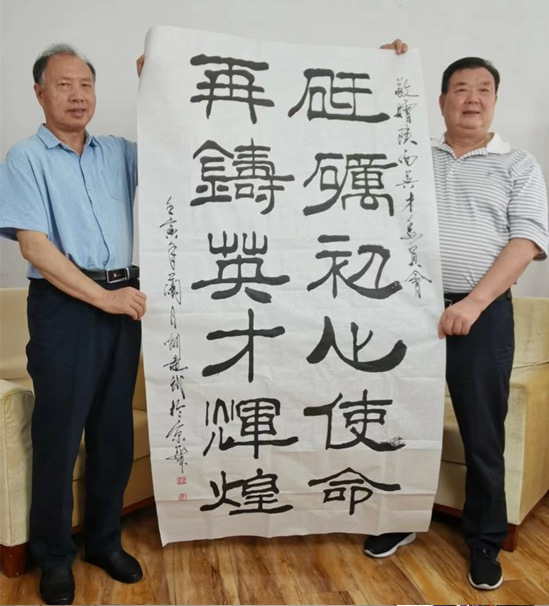 敬贈陝西英才委員會
砥礪初心使命
再鑄英才輝煌
壬寅年蘭月於京華